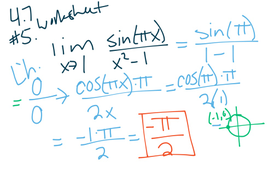 4.7 worksheet
#5. lim x→1 sin(πx)/x²-1 = sin(π)/1-1
L'h. = 0/0 → cos(πx)·π/2x = cos(π)·π/2(1)
(-1,0)
= -1·π/2 = -π/2